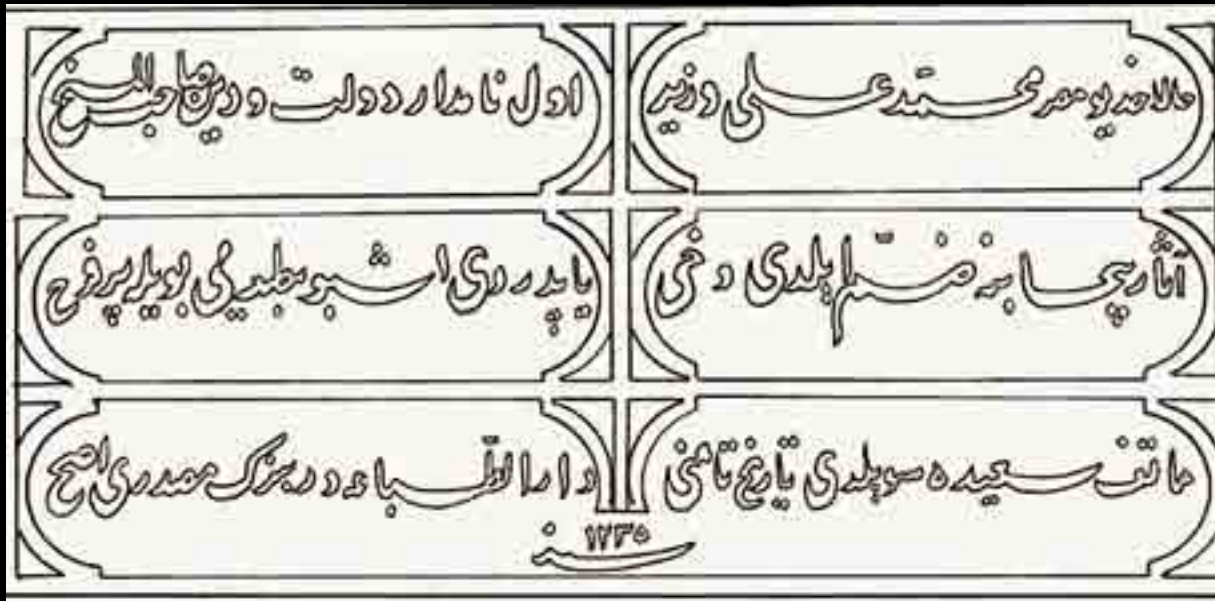 حالا خديو مصر محمد علي وزير
اول نامدار دولت ودين صاحب المنح
آثار بيحسابنه ضم ايلدى دخى
ياپدردى اشبو مطبعه يى بويله پر فرح
هاتف سعيده سويلدى تاريخ تامنى
دار الطباعه در هنرك مصدرى اصح
سنة ١٢٣٥